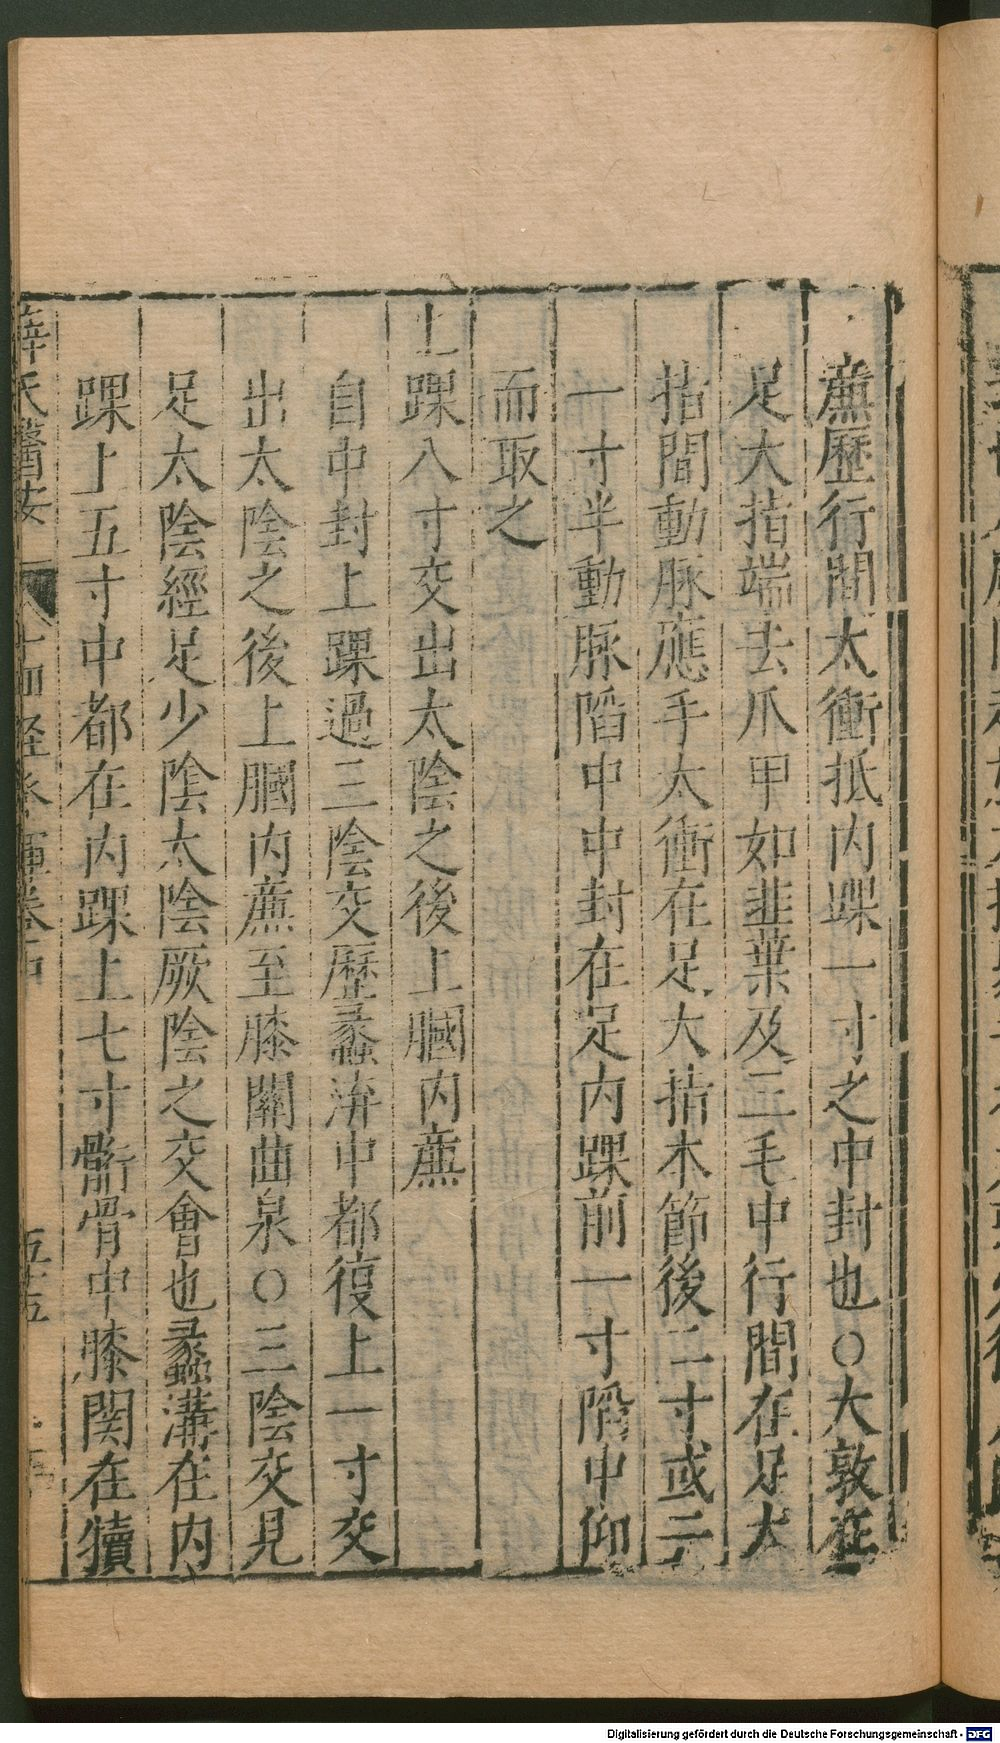 廉歷行間太衝抵内踝一寸之中封也○大敦在
足大指端去爪甲如韭葉及三毛中行間在足大
指間動脉應手太衝在足大指本節後二寸或二
一寸半動脉陷中中封在足内踝前一寸陷中仰
而取之
上踝八寸交出太陰之後上膕内廉
自中封上踝過三陰交歷蠡溝中都復上一寸交
出太陰之後上膕内廉至膝關曲泉○三陰交見
足太陰經足少陰太陰厥陰之交會也蠡溝在内
踝上五寸中都在内踝上七寸䯒骨中膝関在犢
薛氏醫按 十四經發揮卷中 五十五
Digitalisierung gefördert durch die Deutsche Forschungsgemeinschaft - DFG